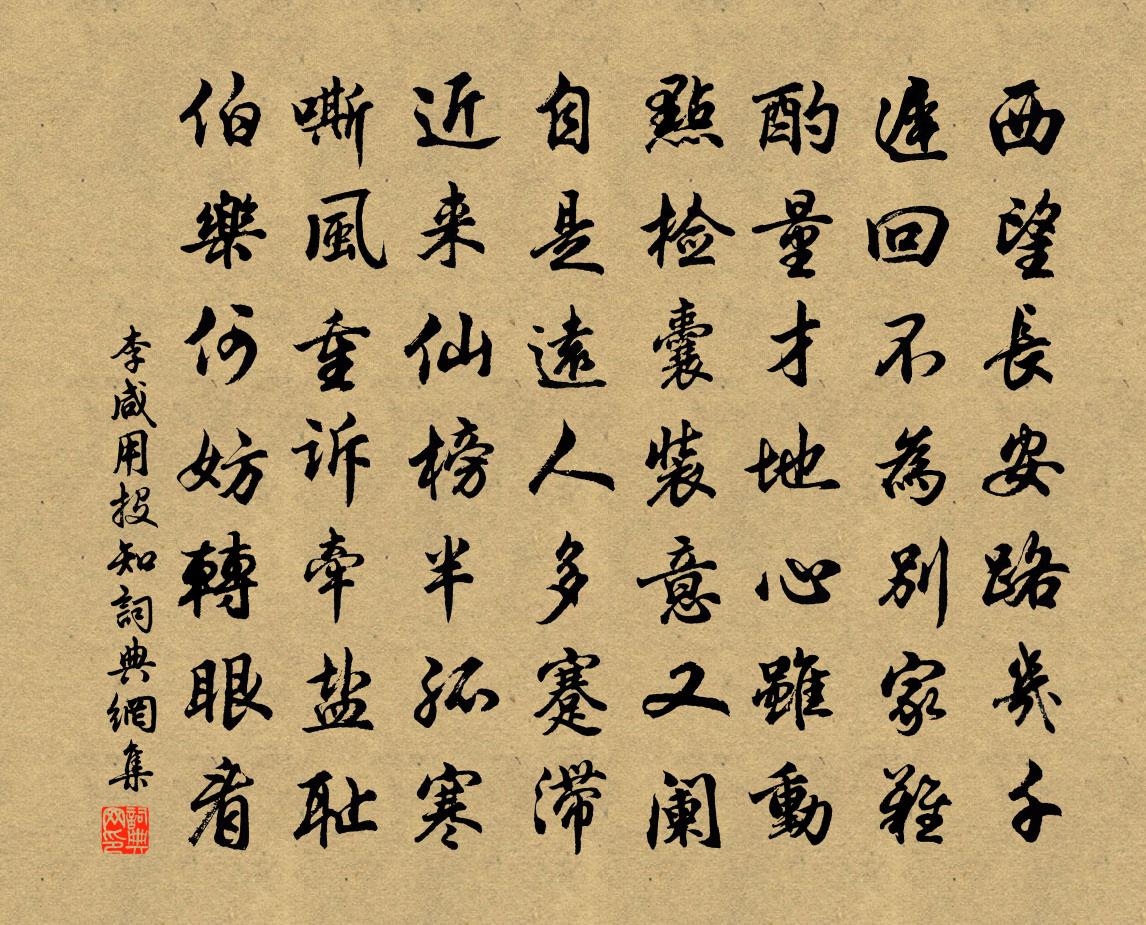 西望長安路幾千
遲回不為別家難
酌量才地心雖動
點檢囊裝意又闌
自是遠人多蹇滯
近来仙榜半孤寒
嘶風重诉牽盐耻
伯樂何妨轉眼看
李咸用投知詞典網集
詞典网印